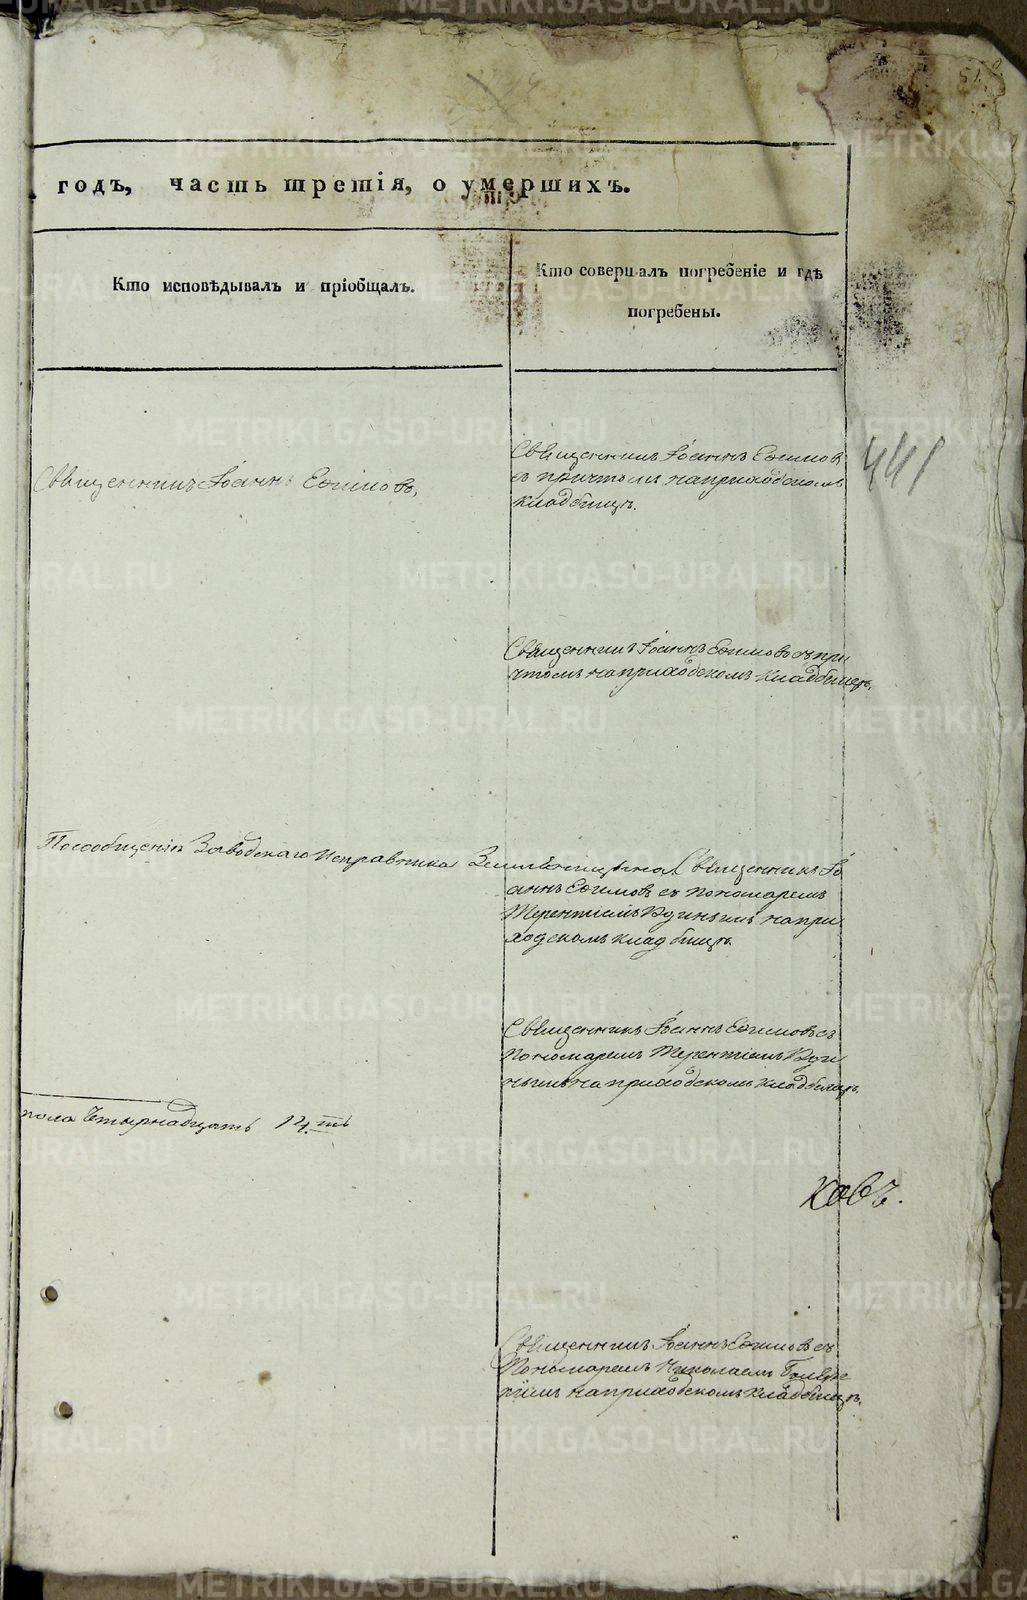 годъ, часть третія, о умершихъ.
Кто исповѣдывалъ и пріобщалъ.
Кто совершалъ погребеніе и гдѣ
погребены.
441
Священникъ Іоаннъ Ефимовъ,
Священникъ Іоаннъ Ефимовъ
съ причтомъ на приходскомъ
кладбищѣ.
Священникъ Іоаннъ Ефимовъ съ при
чтомъ на приходскомъ кладбищѣ.
По сообщенію Заводскаго Исправника
Священникъ Іо
аннъ Ефимовъ съ пономаремъ
Терентіемъ на при
ходскомъ кладбищѣ.
Священникъ Іоаннъ Ефимовъ съ
пономаремъ Терентіемъ
на приходскомъ кладбищѣ.
пола Четырнадцать 14.ть
ковъ.
Священникъ Іоаннъ Ефимовъ съ
Пономаремъ Николаемъ
на приходскомъ кладбищѣ.
METRIKI.GASO-URAL.RU